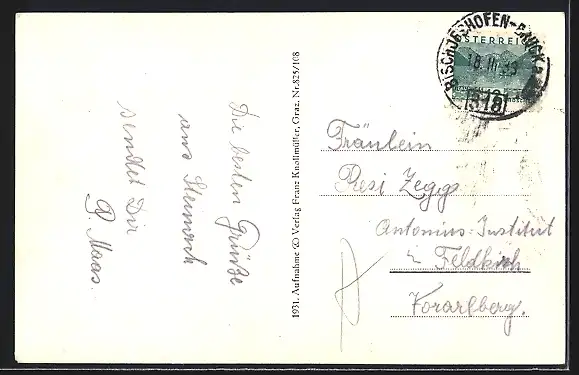 Die besten Grüße
aus Steinach
sendet Dir
R Maas.
1931. Aufnahme & Verlag Franz Knollmüller, Graz, Nr.825/108
BISCHOFSHOFEN-BRUCK
ÖSTERREICH
18.III.33
Fräulein
Resi Zegg
Antonius-Institut
in Feldkirch
Vorarlberg.